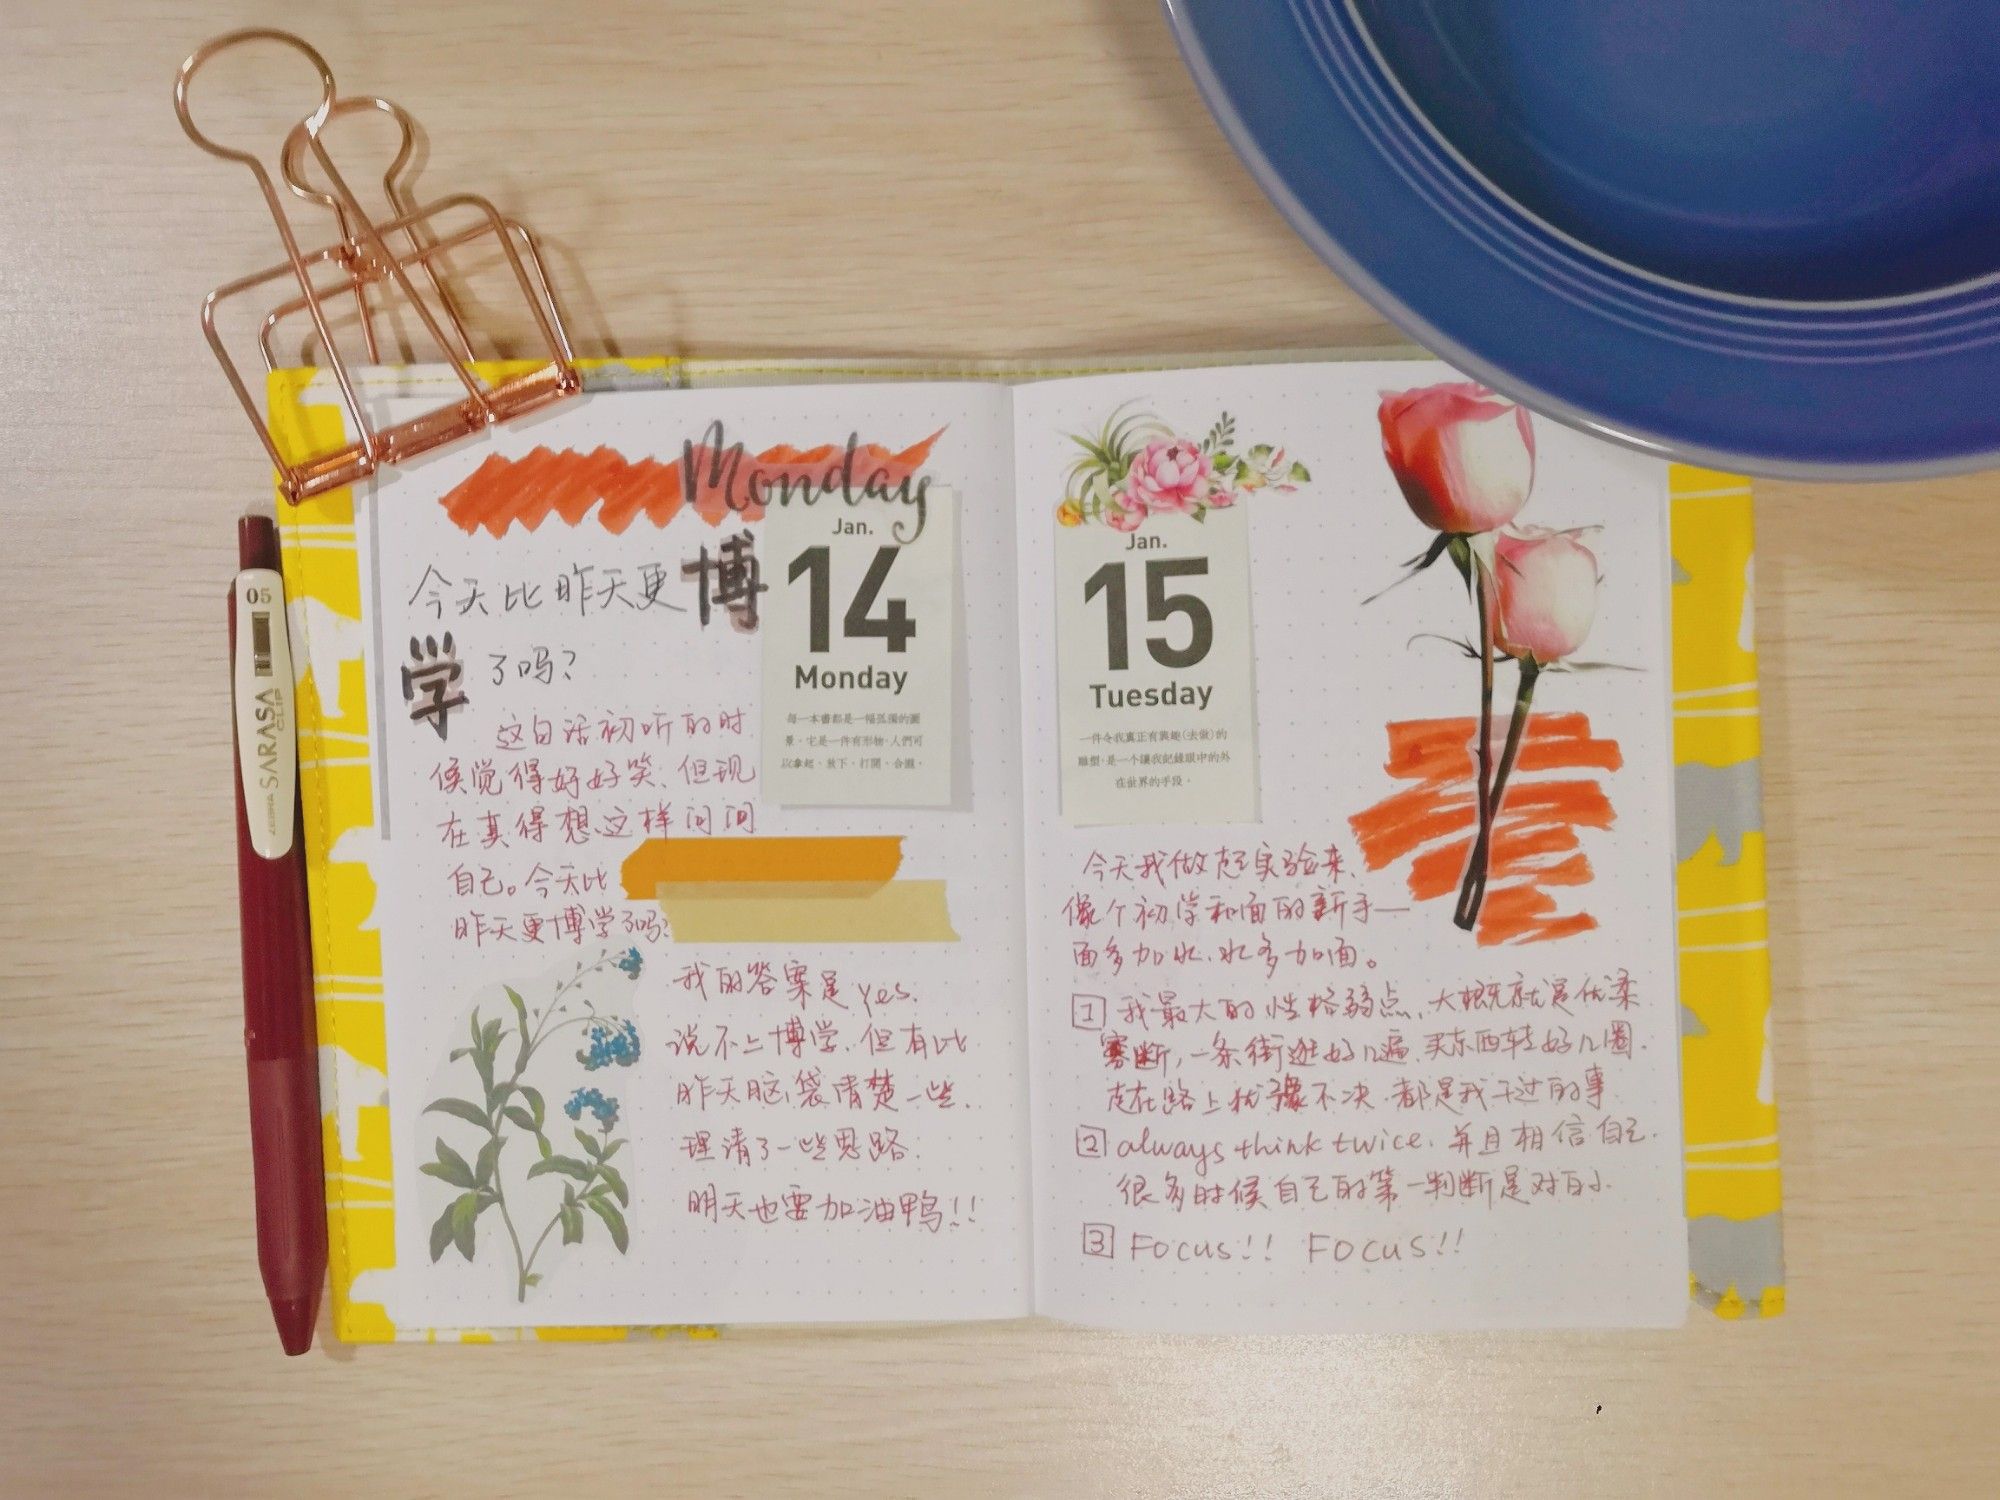 Monday
Jan.
14
Monday
每一本書都是一幅孤獨的圖
景。它是一件有形物,人們可
以拿起、放下、打開、合攏。
今天比昨天更博
学了吗?
这句话初听的时
候觉得好好笑、但现
在真得想这样问问
自己。今天比
昨天更博学了吗?
我的答案是 yes.
说不上博学、但有比
昨天脑袋清楚一些、
理请了一些思路.
明天也要加油鸭!!
05
ZEBRA SARASA CLIP
Jan.
15
Tuesday
一件令我真正有興趣(去做)的
雕塑,是一個讓我記錄眼中的外
在世界的手段。
今天我做起实验来、
像个初学和面的新手—
面多加水、水多加面。
1 我最大的性格弱点、大概就是优柔
寡断,一条街逛好几遍、买东西转好几圈.
走在路上犹豫不决.都是我干过的事
2 always think twice. 并且相信自己.
很多时候自己的第一判断是对的.
3 Focus!! Focus!!